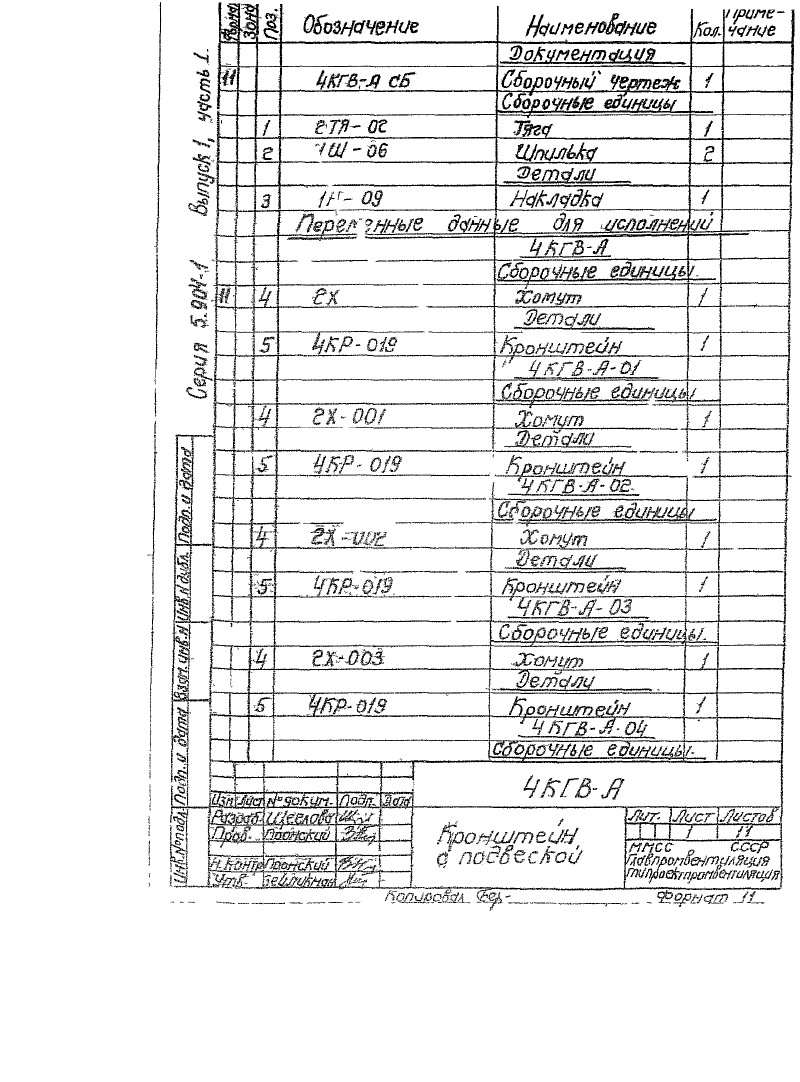 Форм. Зона Поз. Обозначение Наименование Кол. Приме-
чание
Документация
11 4КГВ-А СБ Сборочный чертеж 1
Сборочные единицы
1 2ТЯ-02 Тяга 1
2 1Ш-06 Шпилька 2
Детали
3 1Н-09 Накладка 1
Переменные данные для исполнений
4КГВ-А
Сборочные единицы
11 4 2Х Хомут 1
Детали
5 4КР-019 Кронштейн 1
4КГВ-А-01
Сборочные единицы
4 2Х-001 Хомут 1
Детали
5 4КР-019 Кронштейн 1
4КГВ-А-02
Сборочные единицы
4 2Х-002 Хомут 1
Детали
5 4КР-019 Кронштейн 1
4КГВ-А-03
Сборочные единицы
4 2Х-003 Хомут 1
Детали
5 4КР-019 Кронштейн 1
4КГВ-А-04
Сборочные единицы
Серия 5.904-1 Выпуск 1, часть 1.
Инв.№подл. Подп. и дата Взам.инв.№ Инв.№дубл. Подп. и дата
4КГВ-А
Изм Лист №докум. Подп. Дата
Разраб.
Пров.
Н.контр
Утв.
Кронштейн
с подвеской
Лит. Лист Листов
1 11
ММСС СССР
Главпромвентиляция
Гипроектпромвентиляция
Копировал Формат 11